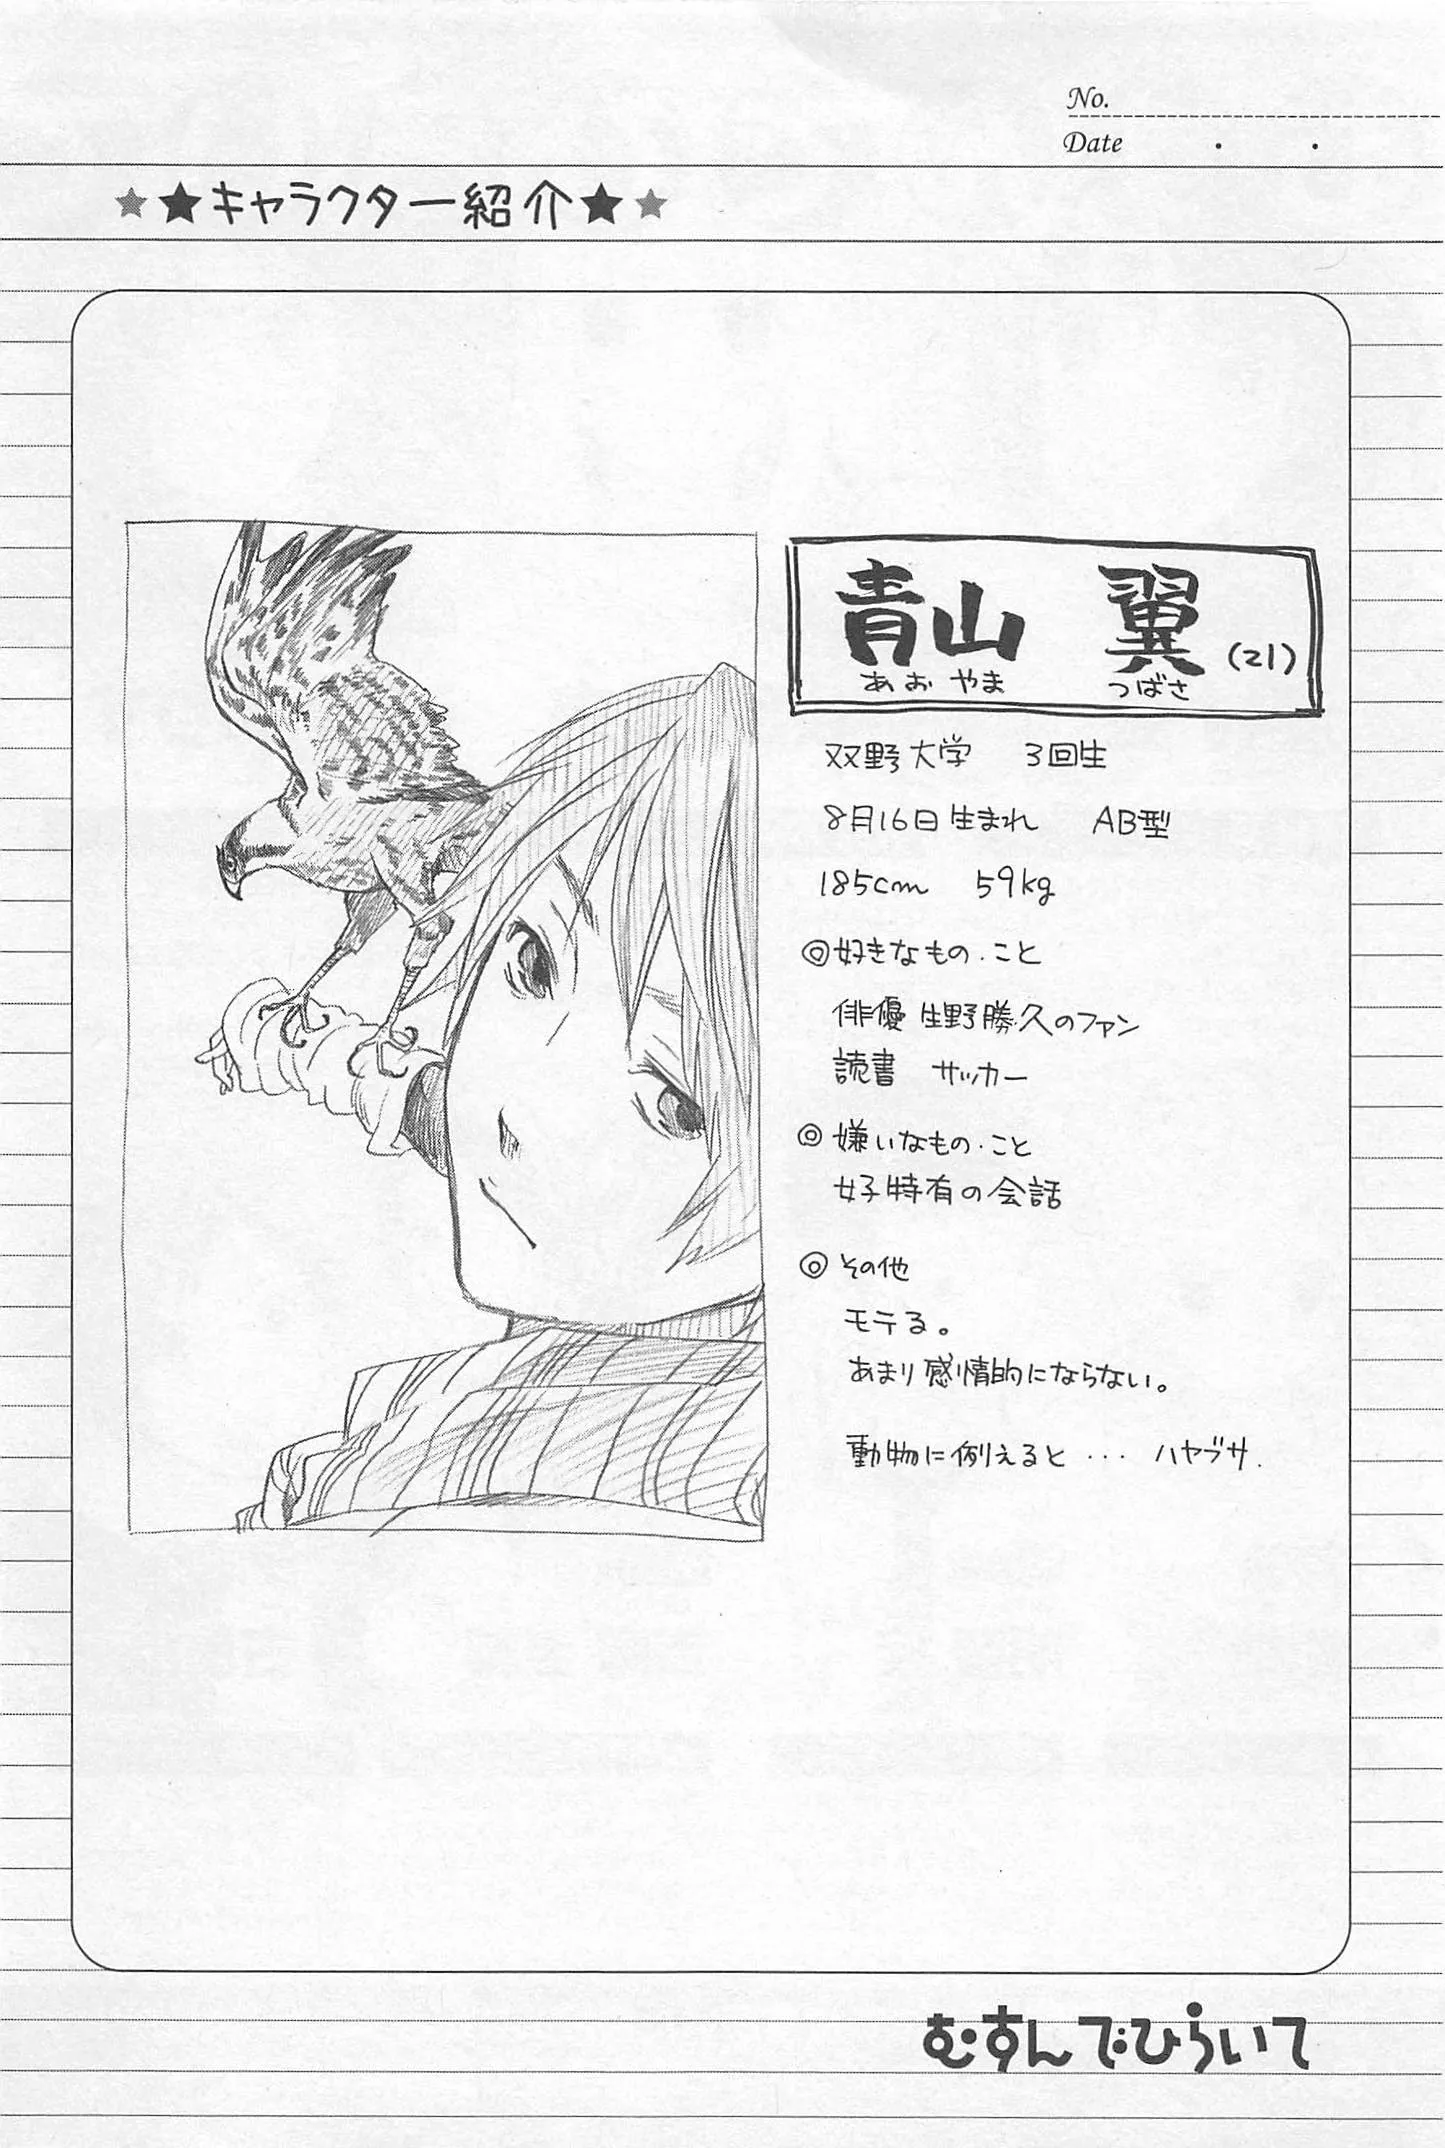 No.
Date ・ ・
★★キャラクター紹介★★
青山 翼 (21)
あおやま つばさ
双野大学 3回生
8月16日生まれ AB型
185cm 59kg
◎好きなもの・こと
俳優 生野勝久のファン
読書 サッカー
◎嫌いなもの・こと
女子特有の会話
◎その他
モテる。
あまり感情的にならない。
動物に例えると・・・ ハヤブサ.
むすんでひらいて